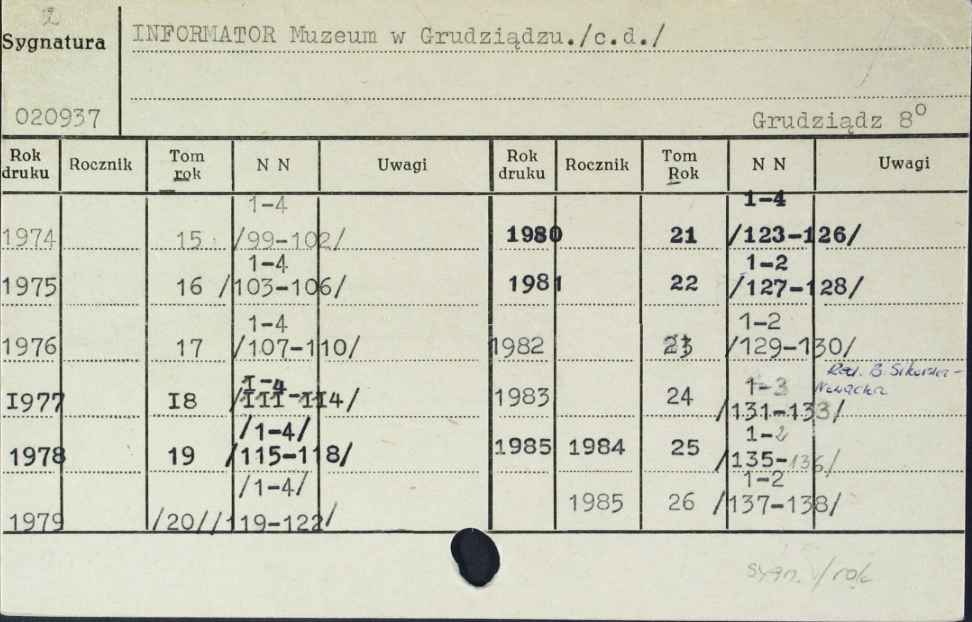 Sygnatura
INFORMATOR Muzeum w Grudziądzu./c.d./
020937
Grudziądz 8°
Rok druku Rocznik Tom rok N N Uwagi Rok druku Rocznik Tom Rok N N Uwagi
1974 15 1-4 /99-102/
1975 16 1-4 /103-106/
1976 17 1-4 /107-110/
I977 I8 I-4 /III-II4/
1978 19 /1-4/ /115-118/
1979 /20/ /1-4/ /119-122/
1980 21 1-4 /123-126/
1981 22 1-2 /127-128/
1982 23 1-2 /129-130/
1983 24 1-3 /131-133/ Red. B. Sikorska-
1985 1984 25 1-2 /135-136/
1985 26 1-2 /137-138/
sygn. /rok